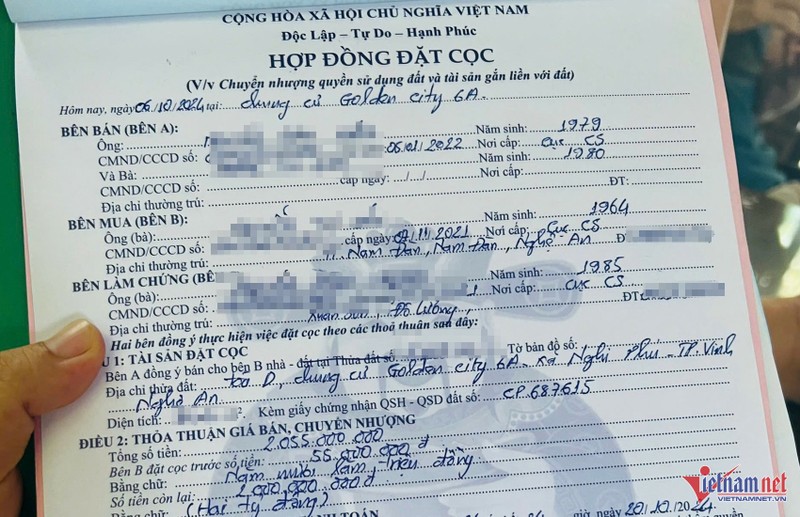 CỘNG HÒA XÃ HỘI CHỦ NGHĨA VIỆT NAM
Độc Lập – Tự Do – Hạnh Phúc
HỢP ĐỒNG ĐẶT CỌC
(V/v Chuyển nhượng quyền sử dụng đất và tài sản gắn liền với đất)
Hôm nay, ngày 06/10/2024 tại: chung cư Golden city 6A
BÊN BÁN (BÊN A):
Ông: Năm sinh: 1979
CMND/CCCD số: 06/01/2022 Nơi cấp: cục CS
Và Bà: Năm sinh: 1980
CMND/CCCD số: cấp ngày: .../.../ Nơi cấp:
Địa chỉ thường trú: ĐT:
BÊN MUA (BÊN B):
Ông (bà): Năm sinh: 1964
CMND/CCCD số: cấp ngày 11/2021 Nơi cấp: Cục CS
Địa chỉ thường trú: Nam Đàn, Nghệ An
BÊN LÀM CHỨNG (BÊN
Ông (bà): Năm sinh: 1985
CMND/CCCD số: Nơi cấp: cục CS
Địa chỉ thường trú: Đô Lương, ĐT:
Hai bên đồng ý thực hiện việc đặt cọc theo các thoả thuận sau đây:
U 1: TÀI SẢN ĐẶT CỌC
Bên A đồng ý bán cho bên B nhà - đất tại Thửa đất số: Tờ bản đồ số:
Địa chỉ thửa đất: toà D, chung cư Golden city 6A - xã Nghi Phú - TP. Vinh
Nghệ An
Diện tích: Kèm giấy chứng nhận QSH - QSD đất số: CP 687615
ĐIỀU 2: THỎA THUẬN GIÁ BÁN, CHUYỂN NHƯỢNG
Tổng số tiền: 2.055.000.000
Bên B đặt cọc trước số tiền: 55.000.000 đ
Bằng chữ: Năm mươi lăm triệu đồng
Số tiền còn lại: 2.000.000.000đ
Bằng chữ: (Hai tỷ đồng)
TOÁN giờ, ngày 20/10/2024
Vietnamnet
VIETNAMNET.VN